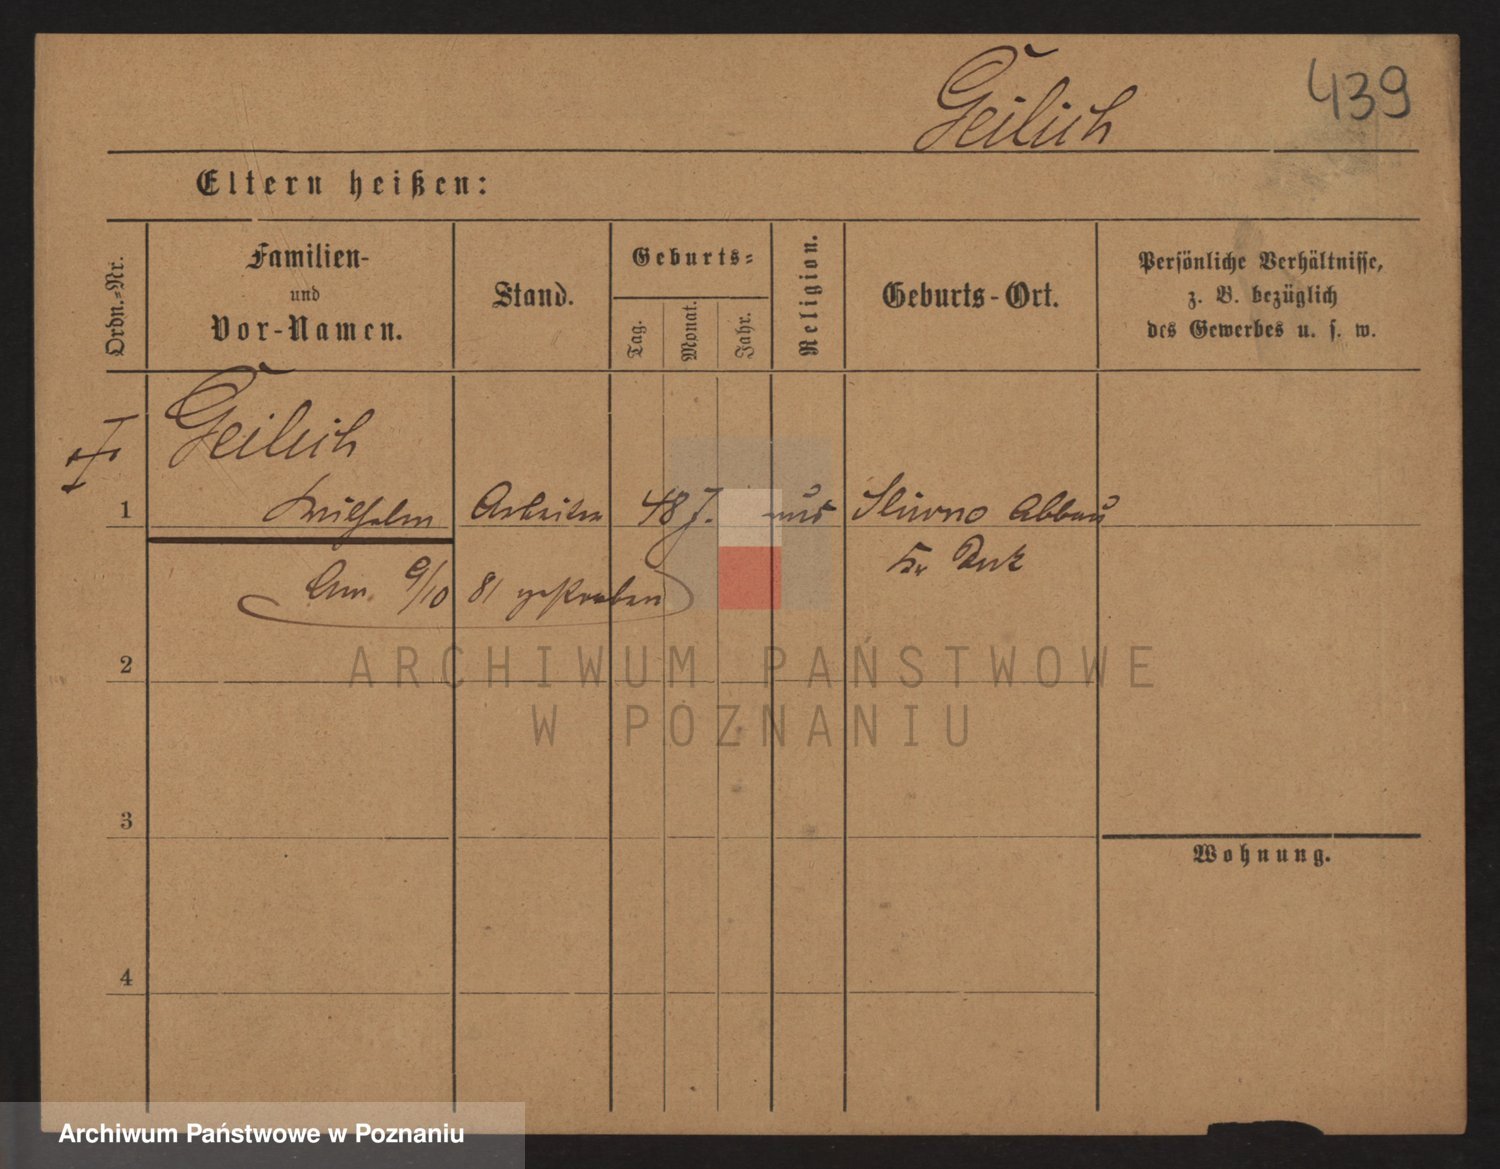 Geilich
439
Eltern heißen:
Ordn.-Nr.
Familien-
und
Vor-Namen.
Stand.
Geburts-
Tag.
Monat.
Jahr.
Religion.
Geburts-Ort.
Persönliche Verhältnisse,
z. B. bezüglich
des Gewerbes u. s. w.
Geilich
1 Wilhelm Arbeiter 48 J. aus Sliwno Abbau
Kr Buk
Am 9/10 81 gestorben
2
ARCHIWUM PAŃSTWOWE
W POZNANIU
3
Wohnung.
4
Archiwum Państwowe w Poznaniu